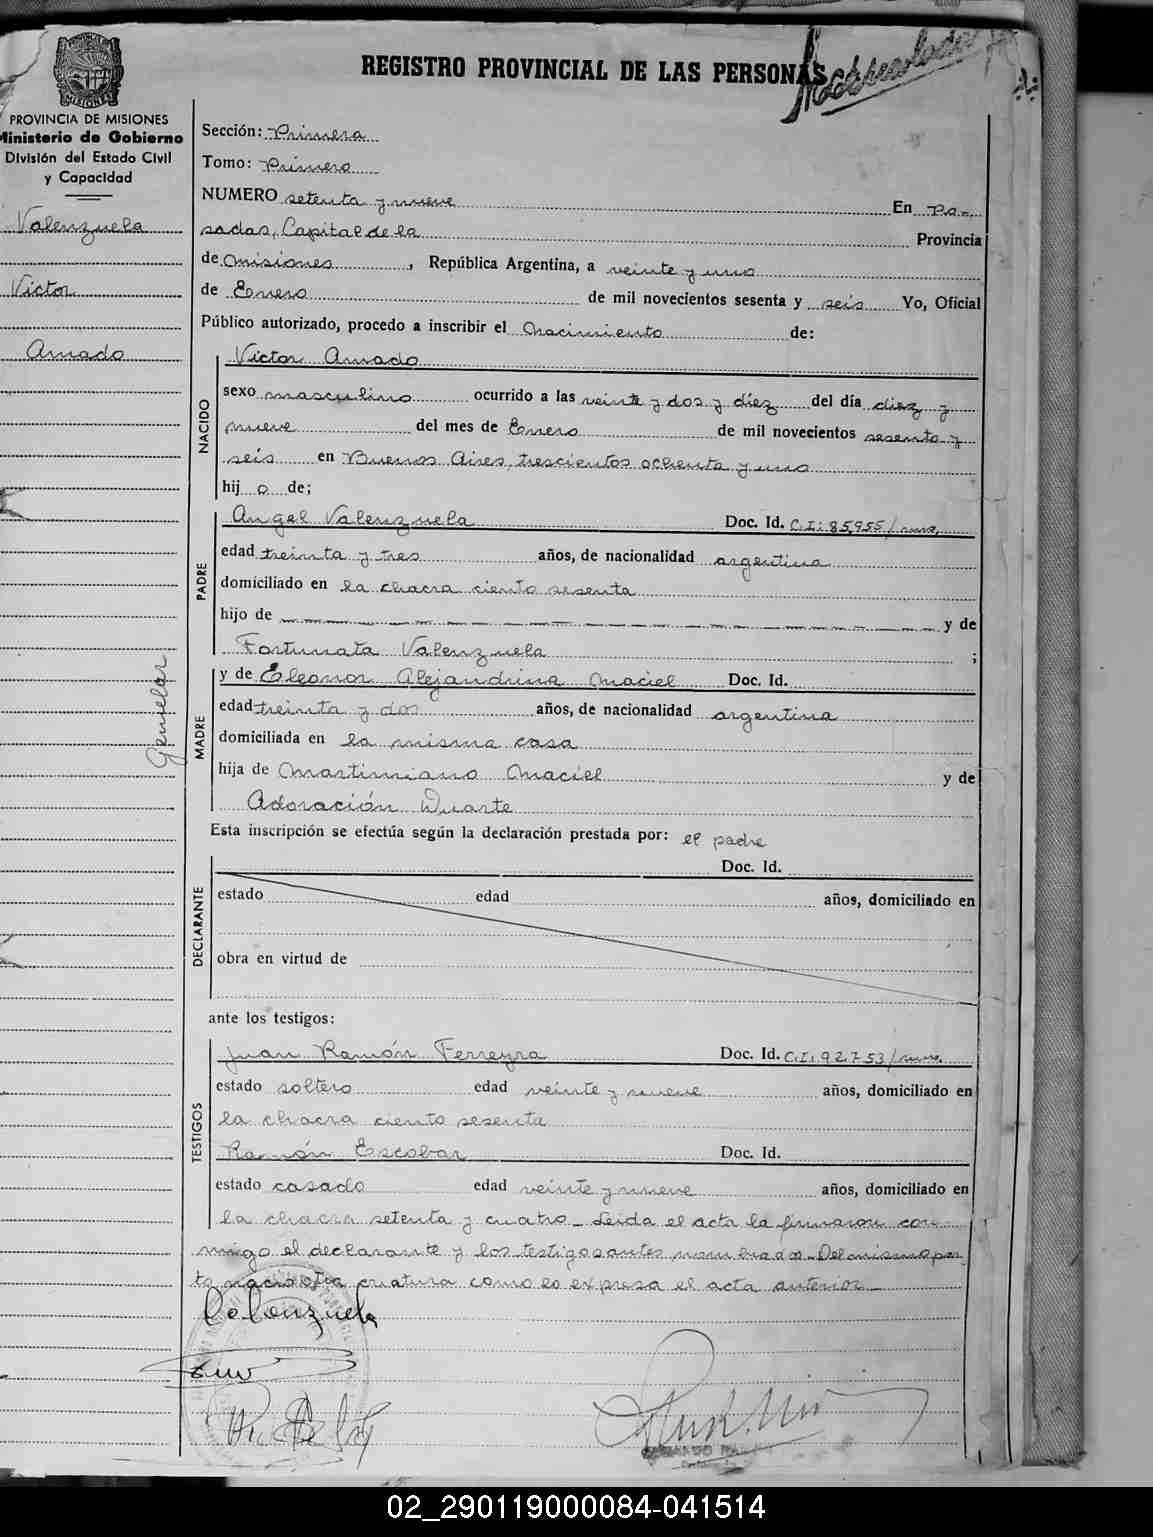 REGISTRO PROVINCIAL DE LAS PERSONAS
PROVINCIA DE MISIONES
Ministerio de Gobierno
División del Estado Civil
y Capacidad
Valenzuela
Victor
Amado
Gemelar
Sección: Primera
Tomo: Primero
NUMERO setenta y nueve En Po-
sadas, Capital de la Provincia
de Misiones, República Argentina, a veinte y uno
de Enero de mil novecientos sesenta y seis Yo, Oficial
Público autorizado, procedo a inscribir el Nacimiento de:
NACIDO
Victor Amado
sexo masculino ocurrido a las veinte y dos y diez del día diez y
nueve del mes de Enero de mil novecientos sesenta y
seis en Buenos Aires, trescientos ochenta y uno
hij o de;
PADRE
Angel Valenzuela Doc. Id. C.I: 85,955/
edad treinta y tres años, de nacionalidad argentina
domiciliado en la chacra ciento sesenta
hijo de y de
Fortunata Valenzuela ;
MADRE
y de Eleonor Alejandrina Maciel Doc. Id.
edad treinta y dos años, de nacionalidad argentina
domiciliada en la misma casa
hija de Martimiano Maciel y de
Adoración Duarte
Esta inscripción se efectúa según la declaración prestada por: el padre
DECLARANTE
Doc. Id.
estado edad años, domiciliado en
obra en virtud de
ante los testigos:
TESTIGOS
Juan Ramón Ferreyra Doc. Id. C.I. 92.753/
estado soltero edad veinte y nueve años, domiciliado en
la chacra ciento sesenta
Ramón Escobar Doc. Id.
estado casado edad veinte y nueve años, domiciliado en
la chacra setenta y cuatro_ Leida el acta la firmaron con-
migo el declarante y los testigos antes nombrados. Del mismo par
to nació otra criatura como lo expresa el acta anterior_
02_290119000084-041514